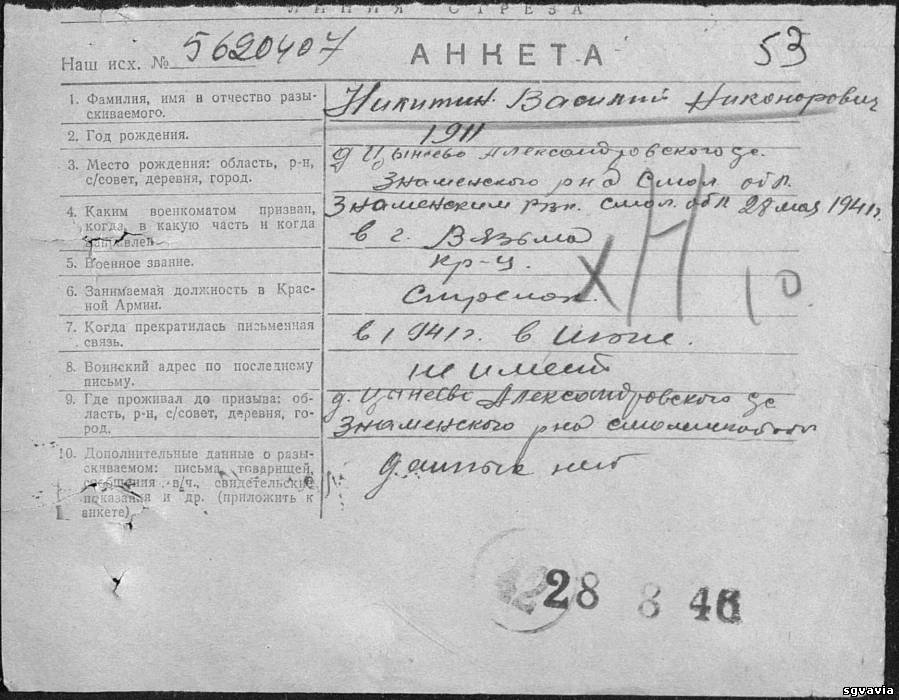 ЛИНИЯ ОТРЕЗА
Наш исх. № 5620407
АНКЕТА
53
1. Фамилия, имя и отчество разы-
скиваемого.
Никитин Василий Никонорович
2. Год рождения.
1911
3. Место рождения: область, р-н,
с/совет, деревня, город.
д Цынеево Александровского сс.
Знаменского рна Смол. обл.
4. Каким военкоматом призван,
когда, в какую часть и когда
направлен.
Знаменским рвк. смол. обл 28 мая 1941г.
в г. Вязьма
5. Воинское звание.
кр-ц.
6. Занимаемая должность в Крас-
ной Армии.
Стрелок.
7. Когда прекратилась письменная
связь.
в 1941г. в Июне.
8. Воинский адрес по последнему
письму.
не имеет
9. Где проживал до призыва: об-
ласть, р-н, с/совет, деревня, го-
род.
д. Цынеево Александровского сс
Знаменского рна
10. Дополнительные данные о разы-
скиваемом: письма товарищей,
сообщения в/ч., свидетельские
показания и др. (приложить к
анкете)
данных нет
хН 10.
28 8 46
sgvavia